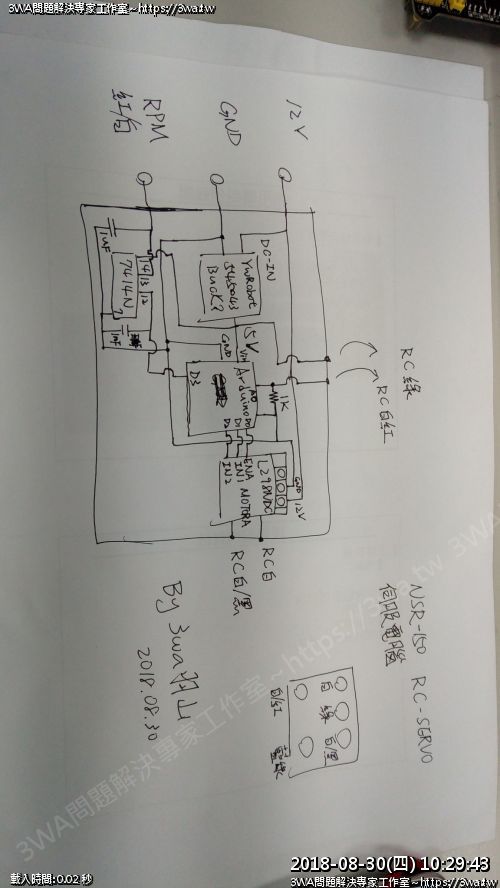 3WA問題解決專家工作室~https://3wa.tw
12V
GND
RPM
紅白
DC-IN
YwRobot
545043
Buck?
5V
VIN
GND
Arduino
A0
D3
D0
D1
D2
1K
RC綠
RC白紅
1uF
7414N
14
13
12
1
2
L298N
ENA
IN1
IN2
MOTORA
GND
12V
RC白
RC白/黑
NSR-150 RC-SERVO
伺服電腦
白
綠
白/黑
白/紅
藍綠
By 3wa羽山
2018.08.30
3WA問題解決專家工作室~https://3wa.tw 3WA
載入時間:0.02 秒
2018-08-30(四) 10:29:43
3WA問題解決專家工作室~https://3wa.tw